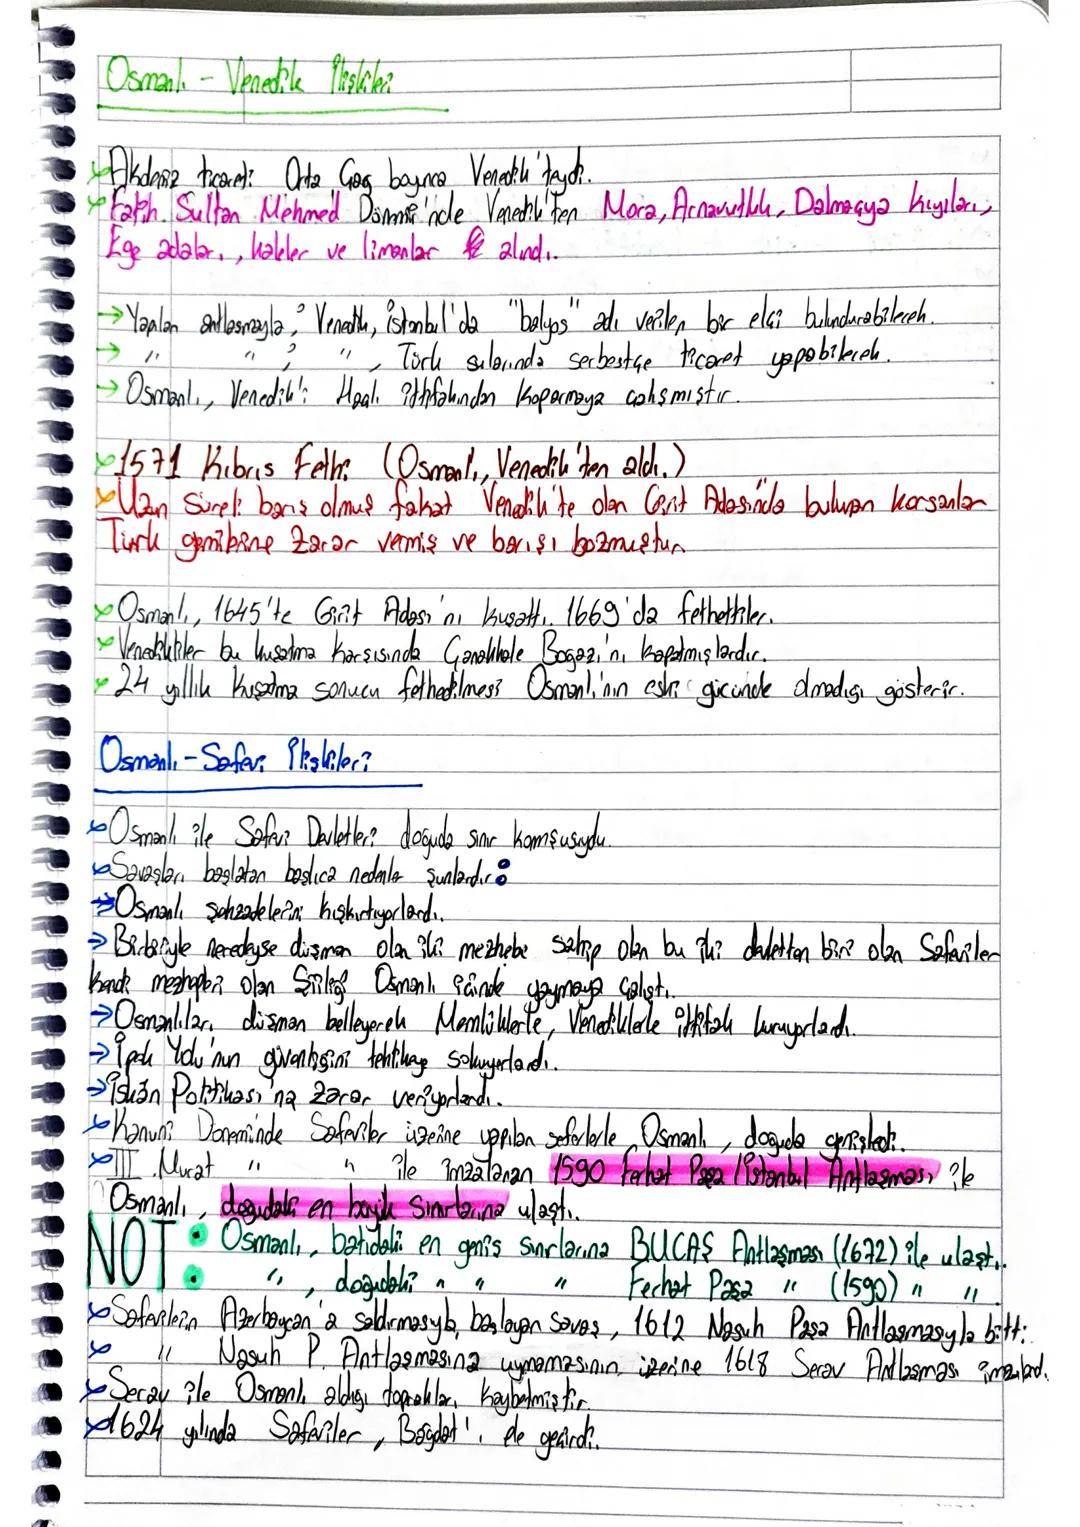 Osmanlı - Venedik İlişkileri
Akdeniz ticareti Orta Çağ boyunca Venedik'teydi.
Fatih Sultan Mehmed Dönemi'nde Venedik'ten Mora, Arnavutluk, Dalmaçya kıyıları,
Ege adaları, kaleler ve limanlar alındı.
→ Yapılan antlaşmayla; Venedik, İstanbul'da "balyos" adı verilen bir elçi bulundurabilecek.
→ " " ; " , Türk sularında serbestçe ticaret yapabilecek.
→ Osmanlı, Venedik'i Haçlı ittifakından koparmaya çalışmıştır.
1571 Kıbrıs Fethi (Osmanlı, Venedik'ten aldı.)
Uzun süreli barış olmuş fakat Venedik'te olan Girit Adası'nda bulunan korsanlar
Türk gemilerine zarar vermiş ve barışı bozmuştur.
Osmanlı, 1645'te Girit Adası'nı kuşattı. 1669'da fethettiler.
Venedikliler bu kuşatma karşısında Çanakkale Boğazı'nı kapatmışlardır.
24 yıllık kuşatma sonucu fethedilmesi Osmanlı'nın eski gücünde olmadığı gösterir.
Osmanlı - Safevi İlişkileri
Osmanlı ile Safevi Devletleri doğuda sınır komşusuydu.
Savaşları başlatan başlıca nedenler şunlardır:
→ Osmanlı şehzadelerini kışkırtıyorlardı.
→ Birbiriyle neredeyse düşman olan iki mezhebe sahip olan bu iki devletten biri olan Safeviler
kendi mezhepleri olan Şiiliği Osmanlı içinde yaymaya çalıştı.
→ Osmanlıları düşman belleyerek Memlüklerle, Venediklerle ittifak kuruyorlardı.
→ İpek Yolu'nun güvenliğini tehlikeye sokuyorlardı.
→ İskân Politikası'na zarar veriyorlardı.
Kanuni Döneminde Safeviler üzerine yapılan seferlerle Osmanlı, doğuda genişledi.
III. Murat " " ile imzalanan 1590 Ferhat Paşa / İstanbul Antlaşması ile
Osmanlı, doğudaki en büyük sınırlarına ulaştı.
NOT: Osmanlı, batıdaki en geniş sınırlarına BUCAŞ Antlaşması (1672) ile ulaştı.
" , doğudaki " " " Ferhat Paşa " (1590) " "
Safevilerin Azerbaycan'a saldırmasıyla başlayan savaş, 1612 Nasuh Paşa Antlaşmasıyla bitti.
" Nasuh P. Antlaşmasına uymamasının üzerine 1618 Serav Antlaşması imzalandı.
Serav ile Osmanlı aldığı toprakları kaybetmiştir.
1624 yılında Safeviler, Bağdat'ı ele geçirdi.